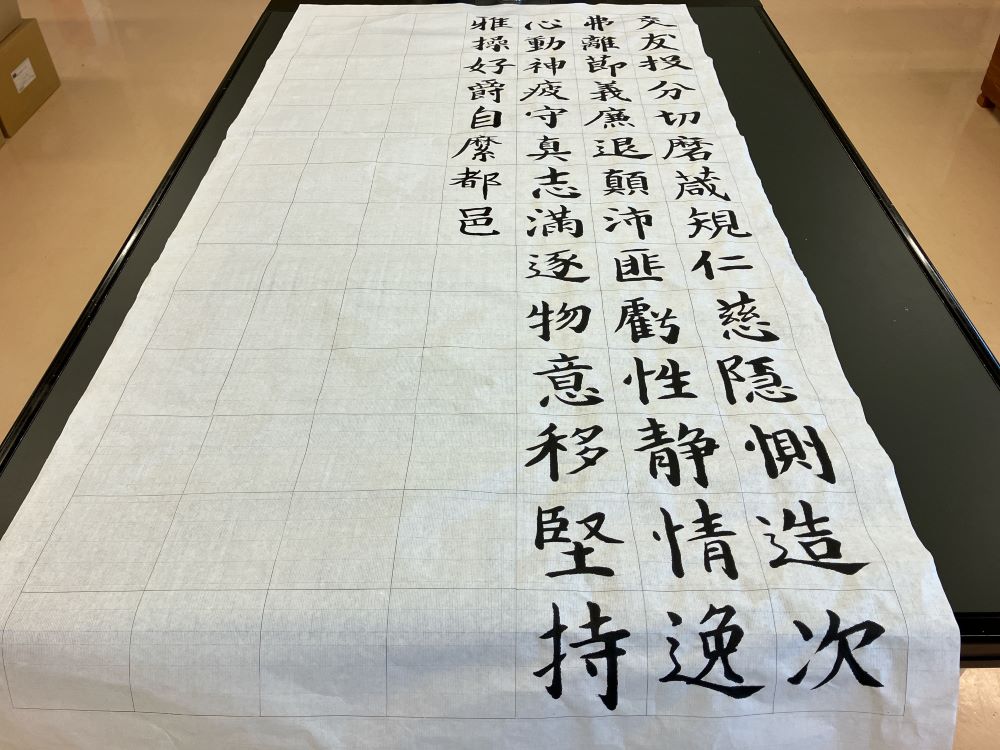 交友投分切磨箴規仁慈隠惻造次
弗離節義廉退顛沛匪虧性静情逸
心動神疲守真志満逐物意移堅持
雅操好爵自縻都邑